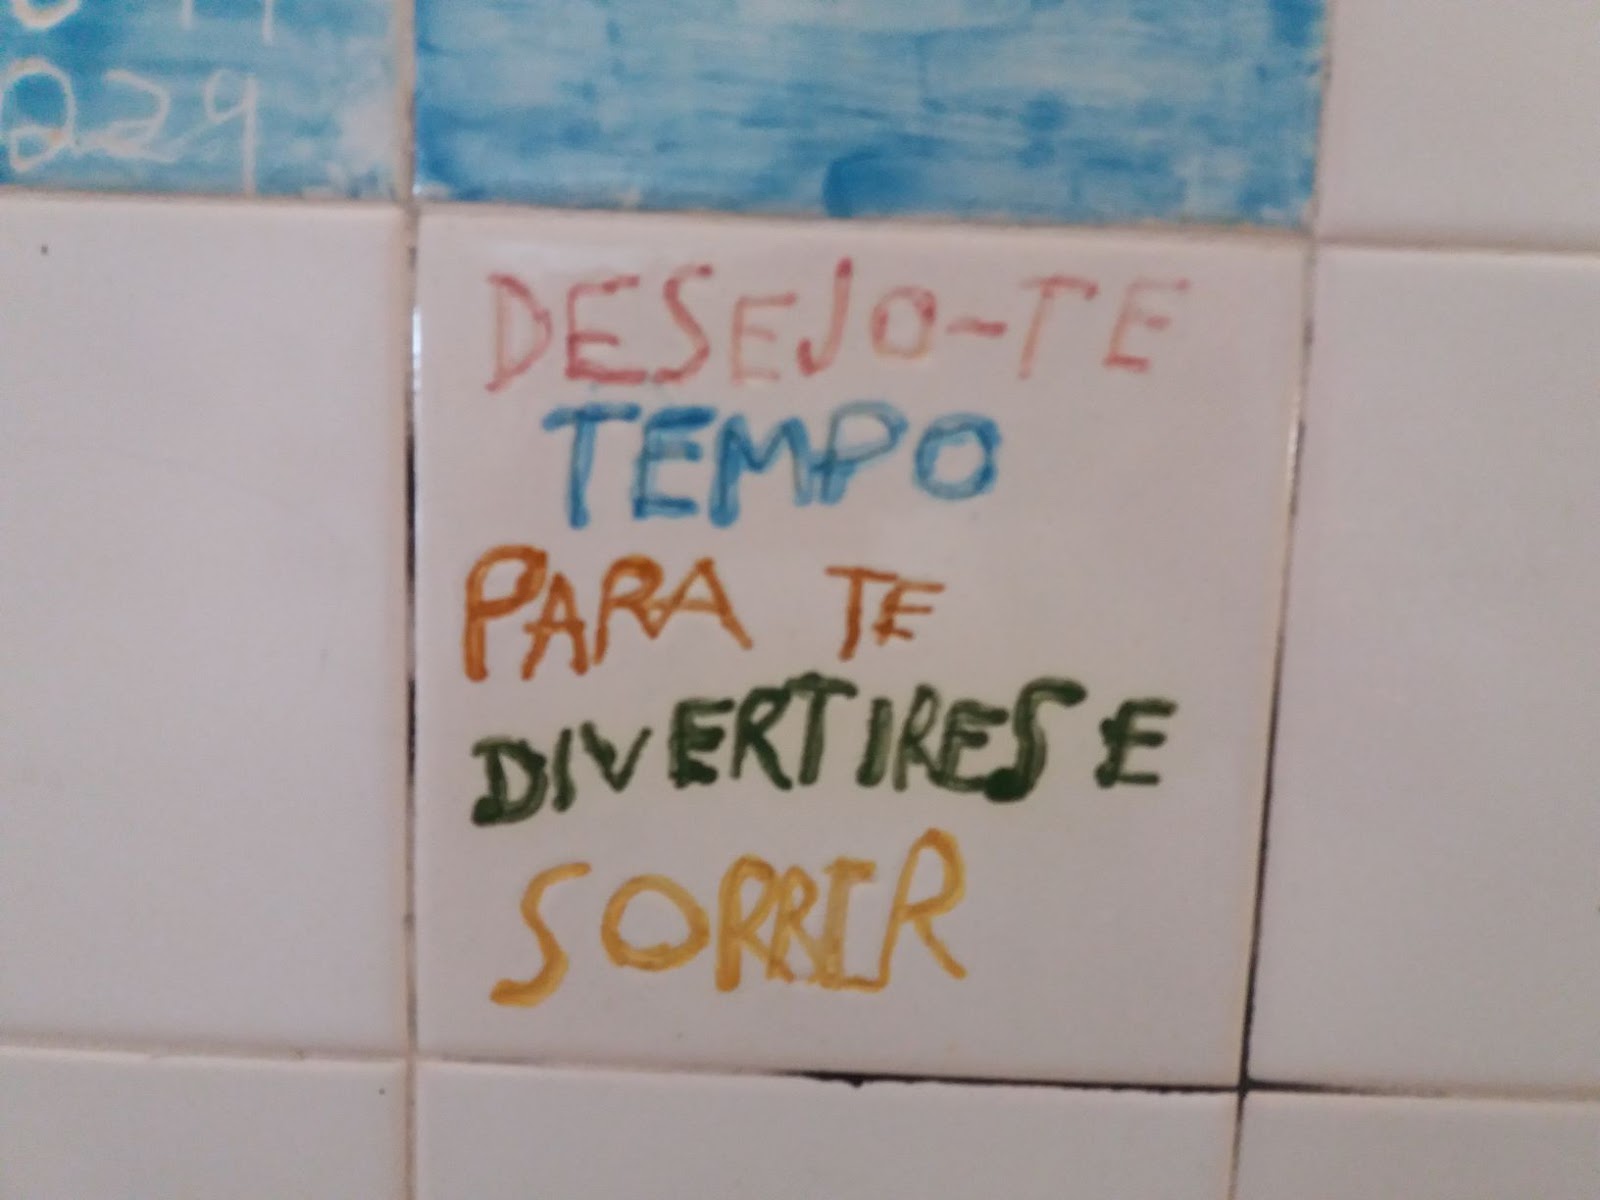 DESEJO-TE
TEMPO
PARA TE
DIVERTIRES E
SORRIR